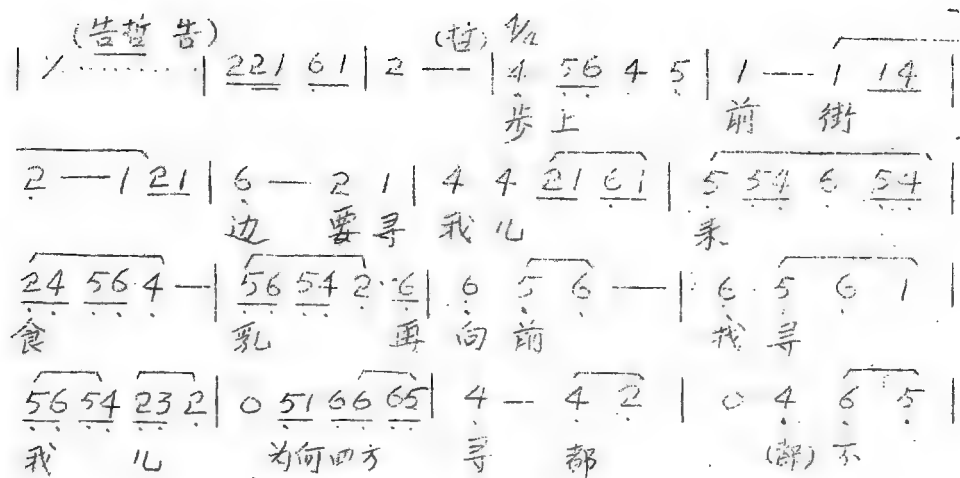 (告哲 告) (哲) 4/4
| ⁒ ········ | 221 61 | 2 — | 4 56 4 5 | 1 — 1 14 |
步 上 前 街
2 — 1 21 | 6 — 2 1 | 4 4 21 61 | 5 54 6 54 |
边 要 寻 我 儿 来
24 56 4 — | 56 54 2· 6 | 6 5 6 — | 6 5 6 1 |
食 乳 再 向 前 找 寻
56 54 23 2 | 0 51 66 65 | 4 — 4 2 | 0 4 6 5 |
我 儿 为何四方 寻 都 (都) 不